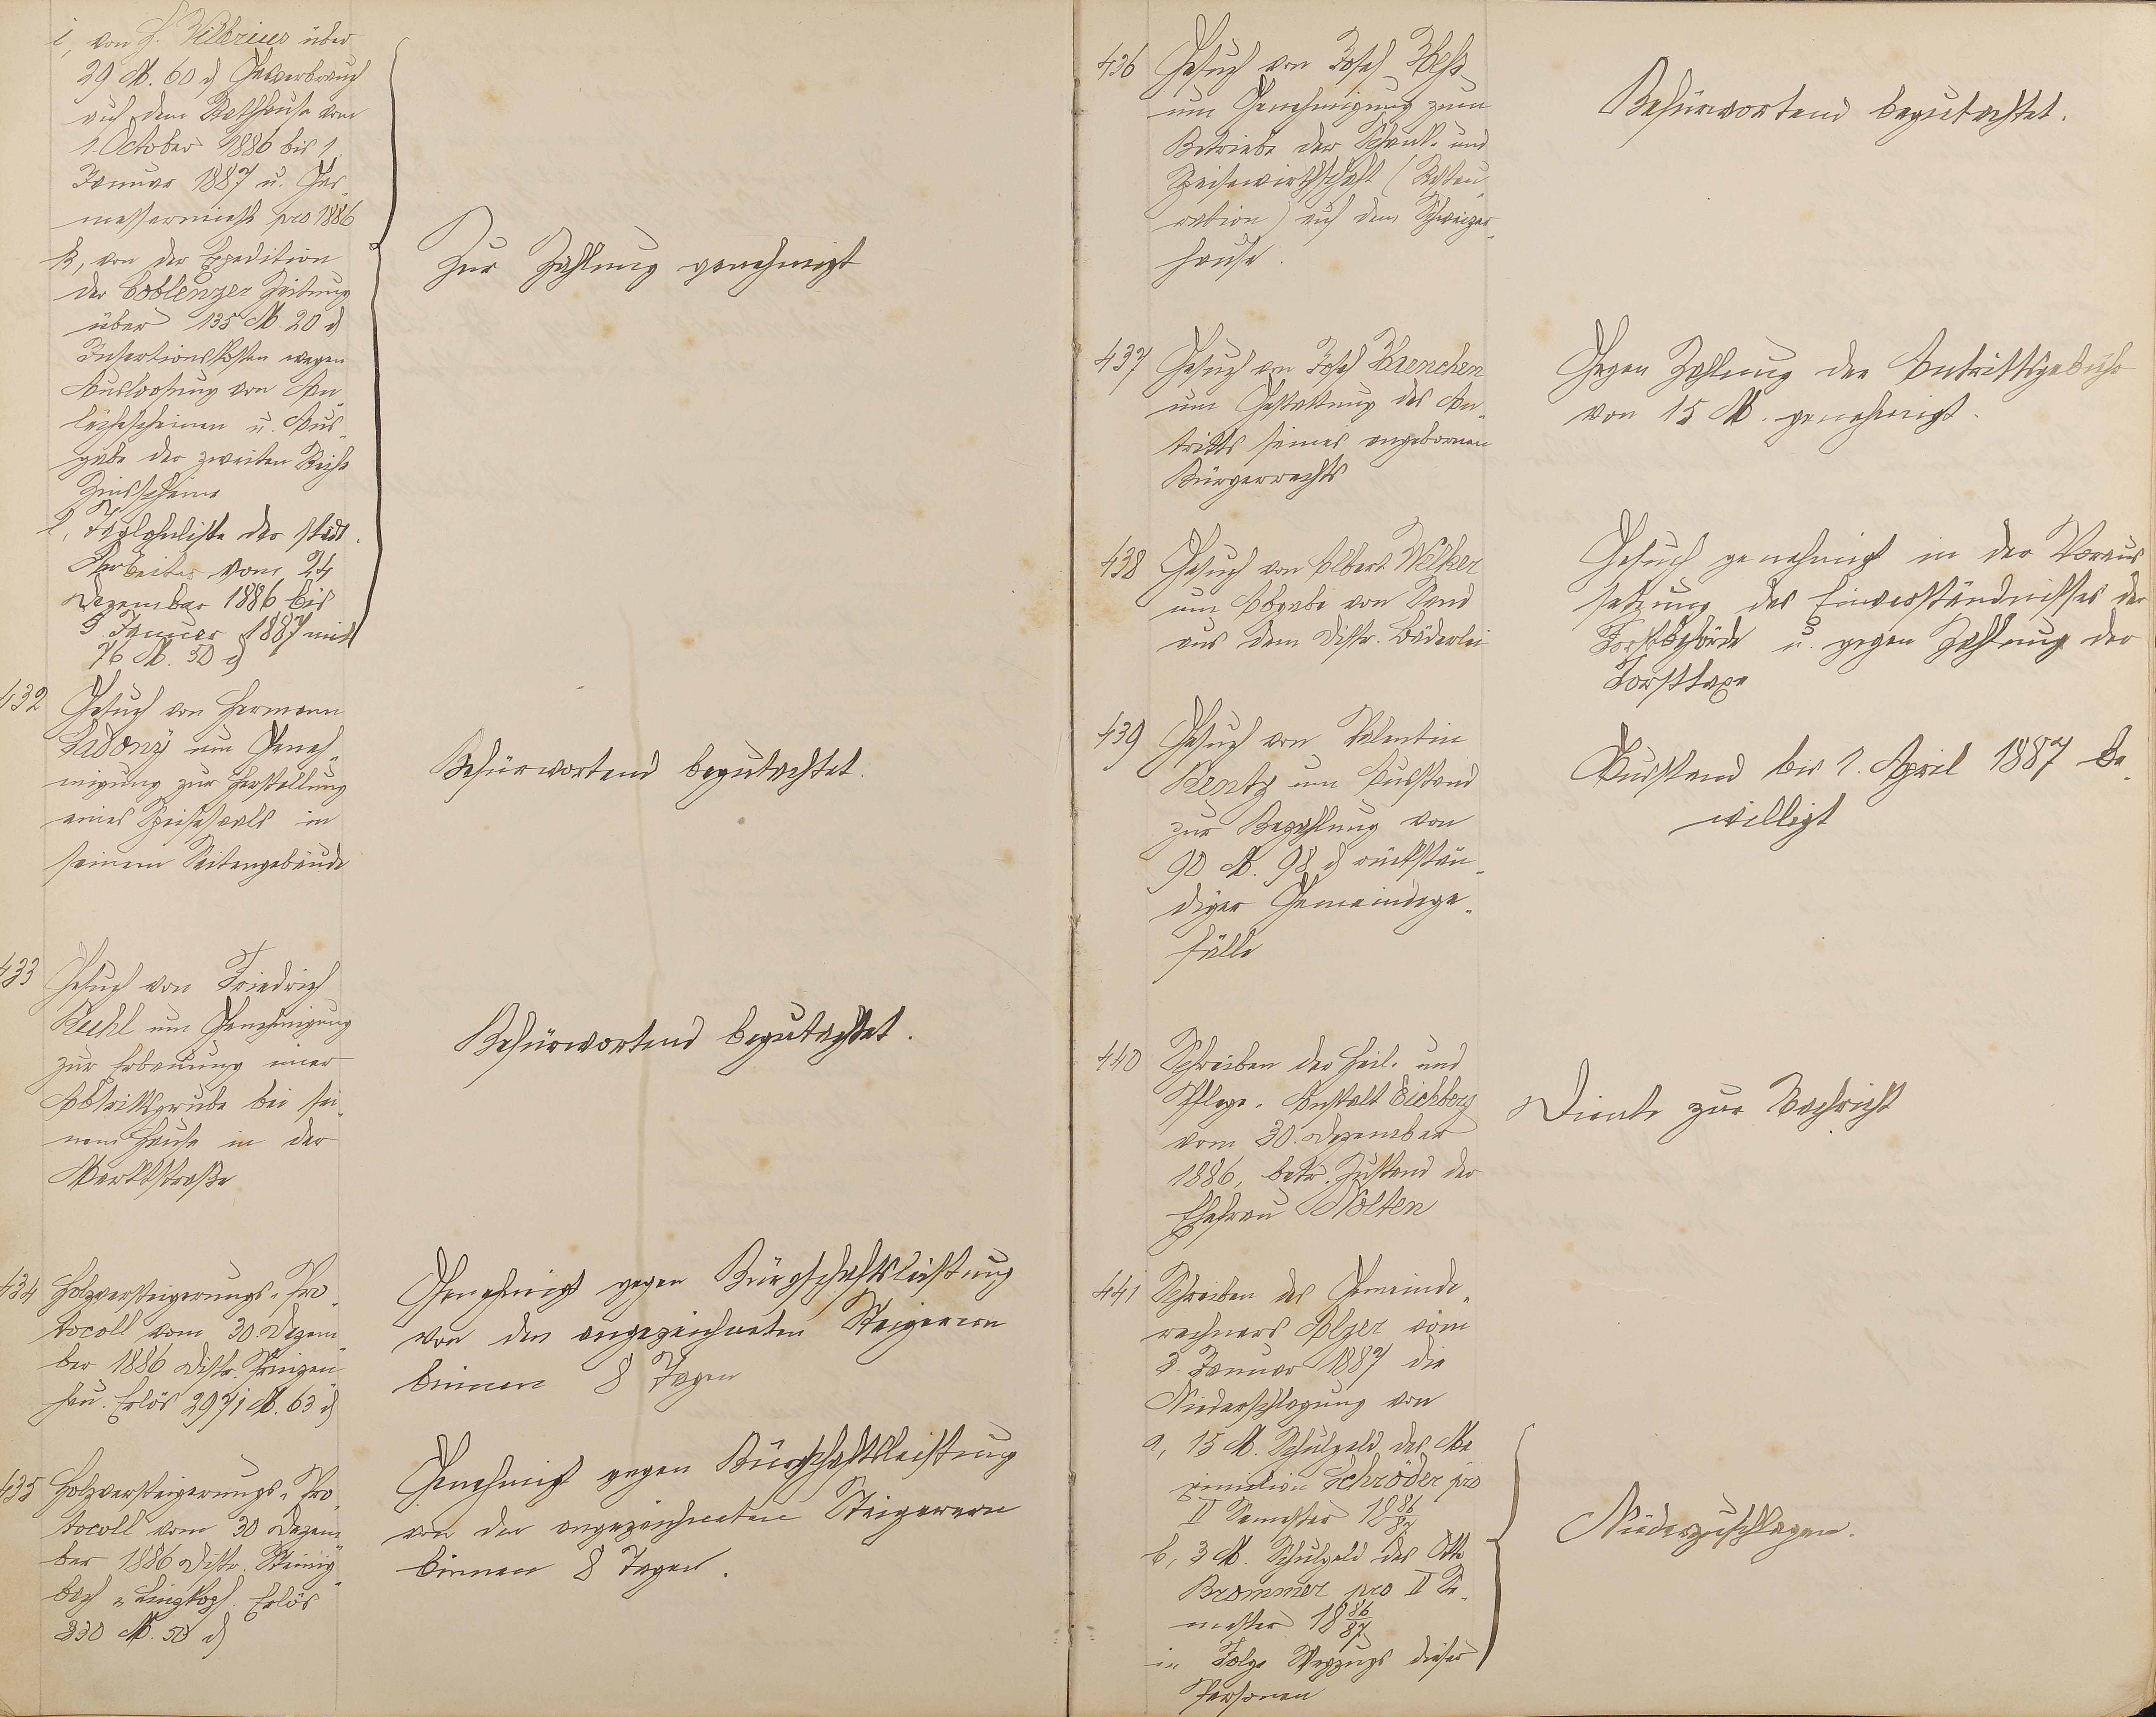 i, von J. Vilbrius über
29 M. 60 d Gasverbrauch
auf dem Rathhause vom
1. October 1886 bis 1.
Januar 1887 u. Gas-
messermiethe pro 1886
k, von der Expedition
der Coblenzer Zeitung
über 135 M. 20 d
Insertionskosten wegen
Ausloosung von An-
leihescheinen u. Aus-
gabe der zweiten Reihe
Zinsscheine
l, Taglohnliste der städt.
Arbeiter vom 24
Dezember 1886 bis
5. Januar 1887 mit
76 M. 50 d
Zur Zahlung genehmigt
432 Gesuch von Hermann
Ladony um Geneh-
migung zur Herstellung
eines Speisesaals in
seinem Seitengebäude
Befürwortend begutachtet.
433 Gesuch von Friedrich
Ruhl um Genehmigung
zur Erbauung einer
Abtrittsgrube bei sei-
nem Hause in der
Marktstraße
Befürwortend begutachtet.
434 Holzversteigerungs-Pro-
tocoll vom 30. Dezem-
ber 1886 Distr.
Erlös 2971 M. 63 d
Genehmigt gegen Bürgschaftsleistung
von den angezeichneten Steigerern
binnen 8 Tagen
435 Holzversteigerungs-Pro-
tocoll vom 30 Dezem-
ber 1886 Distr. Steinig-
bach u. Linzkopf. Erlös
330 M. 50 d
Genehmigt gegen Bürgschaftsleistung
von den angezeichneten Steigerern
binnen 8 Tagen.
436 Gesuch von Josef Heß
um Genehmigung zum
Betriebe der Schank- und
Speisewirthschaft (Restau-
ration) auf dem Schweizer-
hause.
Befürwortend begutachtet.
437 Gesuch von Josef Krenchen
um Gestattung des An-
tritts seines angebornen
Bürgerrechts
Gegen Zahlung der Antrittsgebühr
von 15 M. genehmigt.
438 Gesuch von Albert Welker
um Abgabe von Sand
aus dem Distr. Bäderlei
Gesuch genehmigt in der Voraus-
setzung des Einverständnisses der
Forstbehörde u. gegen Zahlung der
Forsttaxe
439 Gesuch von Valentin
Bentz um Ausstand
zur Bezahlung von
90 M. 98 d rückstän-
diger Gemeindege-
fälle
Ausstand bis 1. April 1887 be-
willigt
440 Schreiben der Heil- und
Pflege-Anstalt Eichberg
vom 30. Dezember
1886, betr. Zustand der
Ehefrau Nolten
Diente zur Nachricht
441 Schreiben des Gemeinde-
rechners Alzer vom
3. Januar 1887 die
Niederschlagung von
a, 15 M. Schulgeld des Ma-
ximilian Schröder pro
II Semester 1886/87
b, 3 M. Schulgeld des Otto
Brommer pro II Se-
mester 1886/87
in Folge Wegzugs dieser
Personen
Niederzuschlagen.